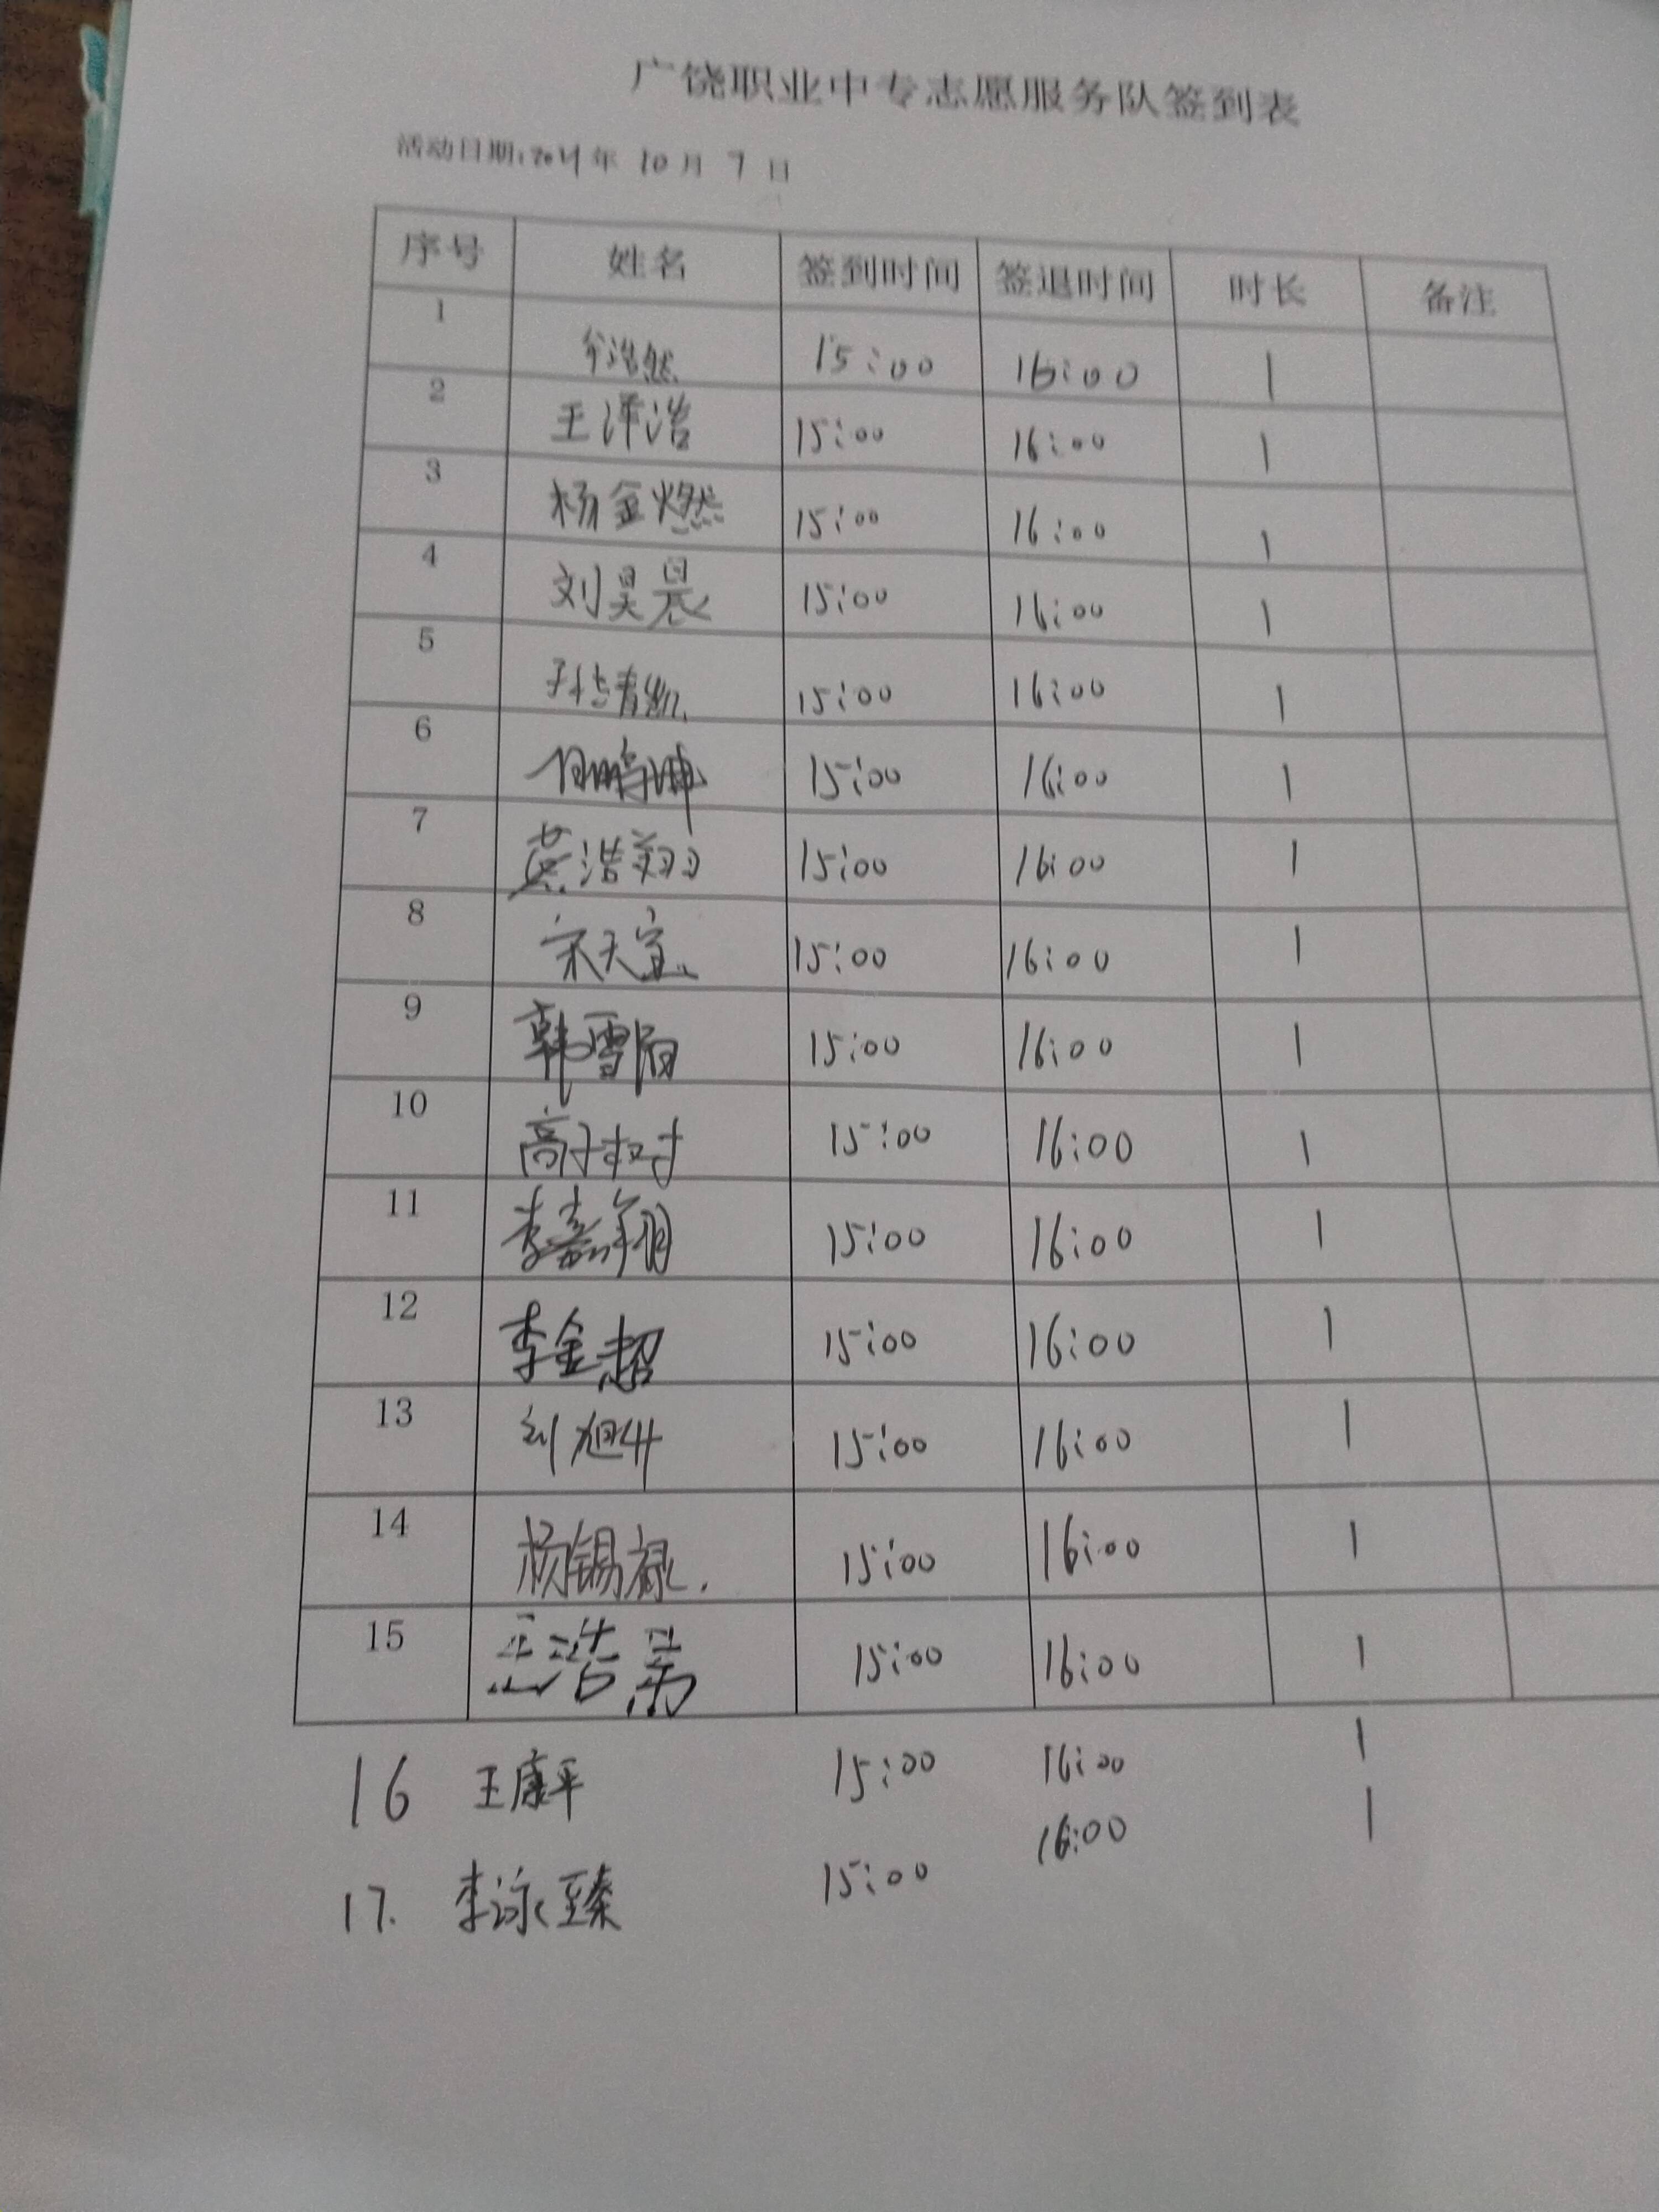 广饶职业中专志愿服务队签到表
活动日期: 年 10 月 7 日
序号 姓名 签到时间 签退时间 时长 备注
1 浩然 15:00 16:00 1
2 王泽浩 15:00 16:00 1
3 杨金燃 15:00 16:00 1
4 刘昊晨 15:00 16:00 1
5 15:00 16:00 1
6 15:00 16:00 1
7 浩翔 15:00 16:00 1
8 宋天宜 15:00 16:00 1
9 韩雪阳 15:00 16:00 1
10 高子 15:00 16:00 1
11 李嘉翔 15:00 16:00 1
12 李金超 15:00 16:00 1
13 刘旭升 15:00 16:00 1
14 杨锡禄. 15:00 16:00 1
15 15:00 16:00 1
16 王康平 15:00 16:00 1
17. 李泳臻 15:00 16:00 1